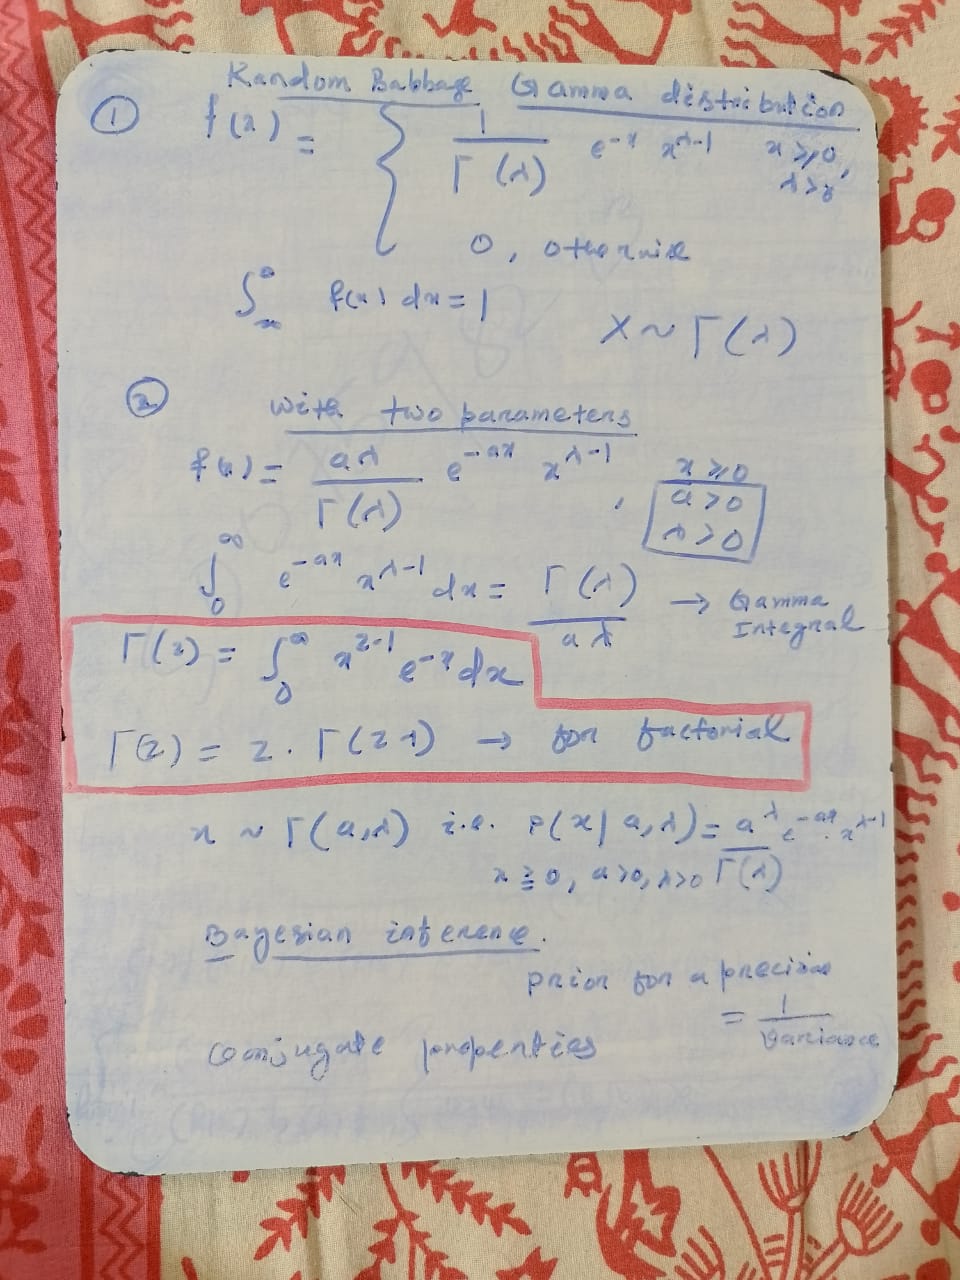 Random Babbage Gamma distribution
① f(x) = { 1 / Γ(λ) e^-x x^λ-1 x ≥ 0,
λ > 0
0, otherwise
∫_-∞^∞ f(x) dx = 1
X ~ Γ(λ)
② with two parameters
f(x) = aλ / Γ(λ) e^-ax x^λ-1, x ≥ 0
a > 0
λ > 0
∫_0^∞ e^-ax x^λ-1 dx = Γ(λ) / aλ → Gamma
Integral
Γ(z) = ∫_0^∞ x^z-1 e^-x dx
Γ(z) = z . Γ(z-1) → for factorial
x ~ Γ(a,λ) i.e. P(x| a,λ) = a^λ / Γ(λ) e^-ax . x^λ-1
x ≥ 0, a>0, λ>0
Bayesian inference.
prior for a precision
= 1 / variance
Conjugate properties